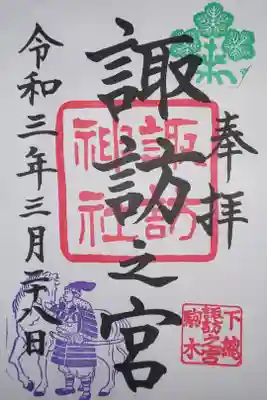 奉拝
諏訪之宮
令和三年三月二八日
諏訪
神社
下総
諏訪之宮
駒木